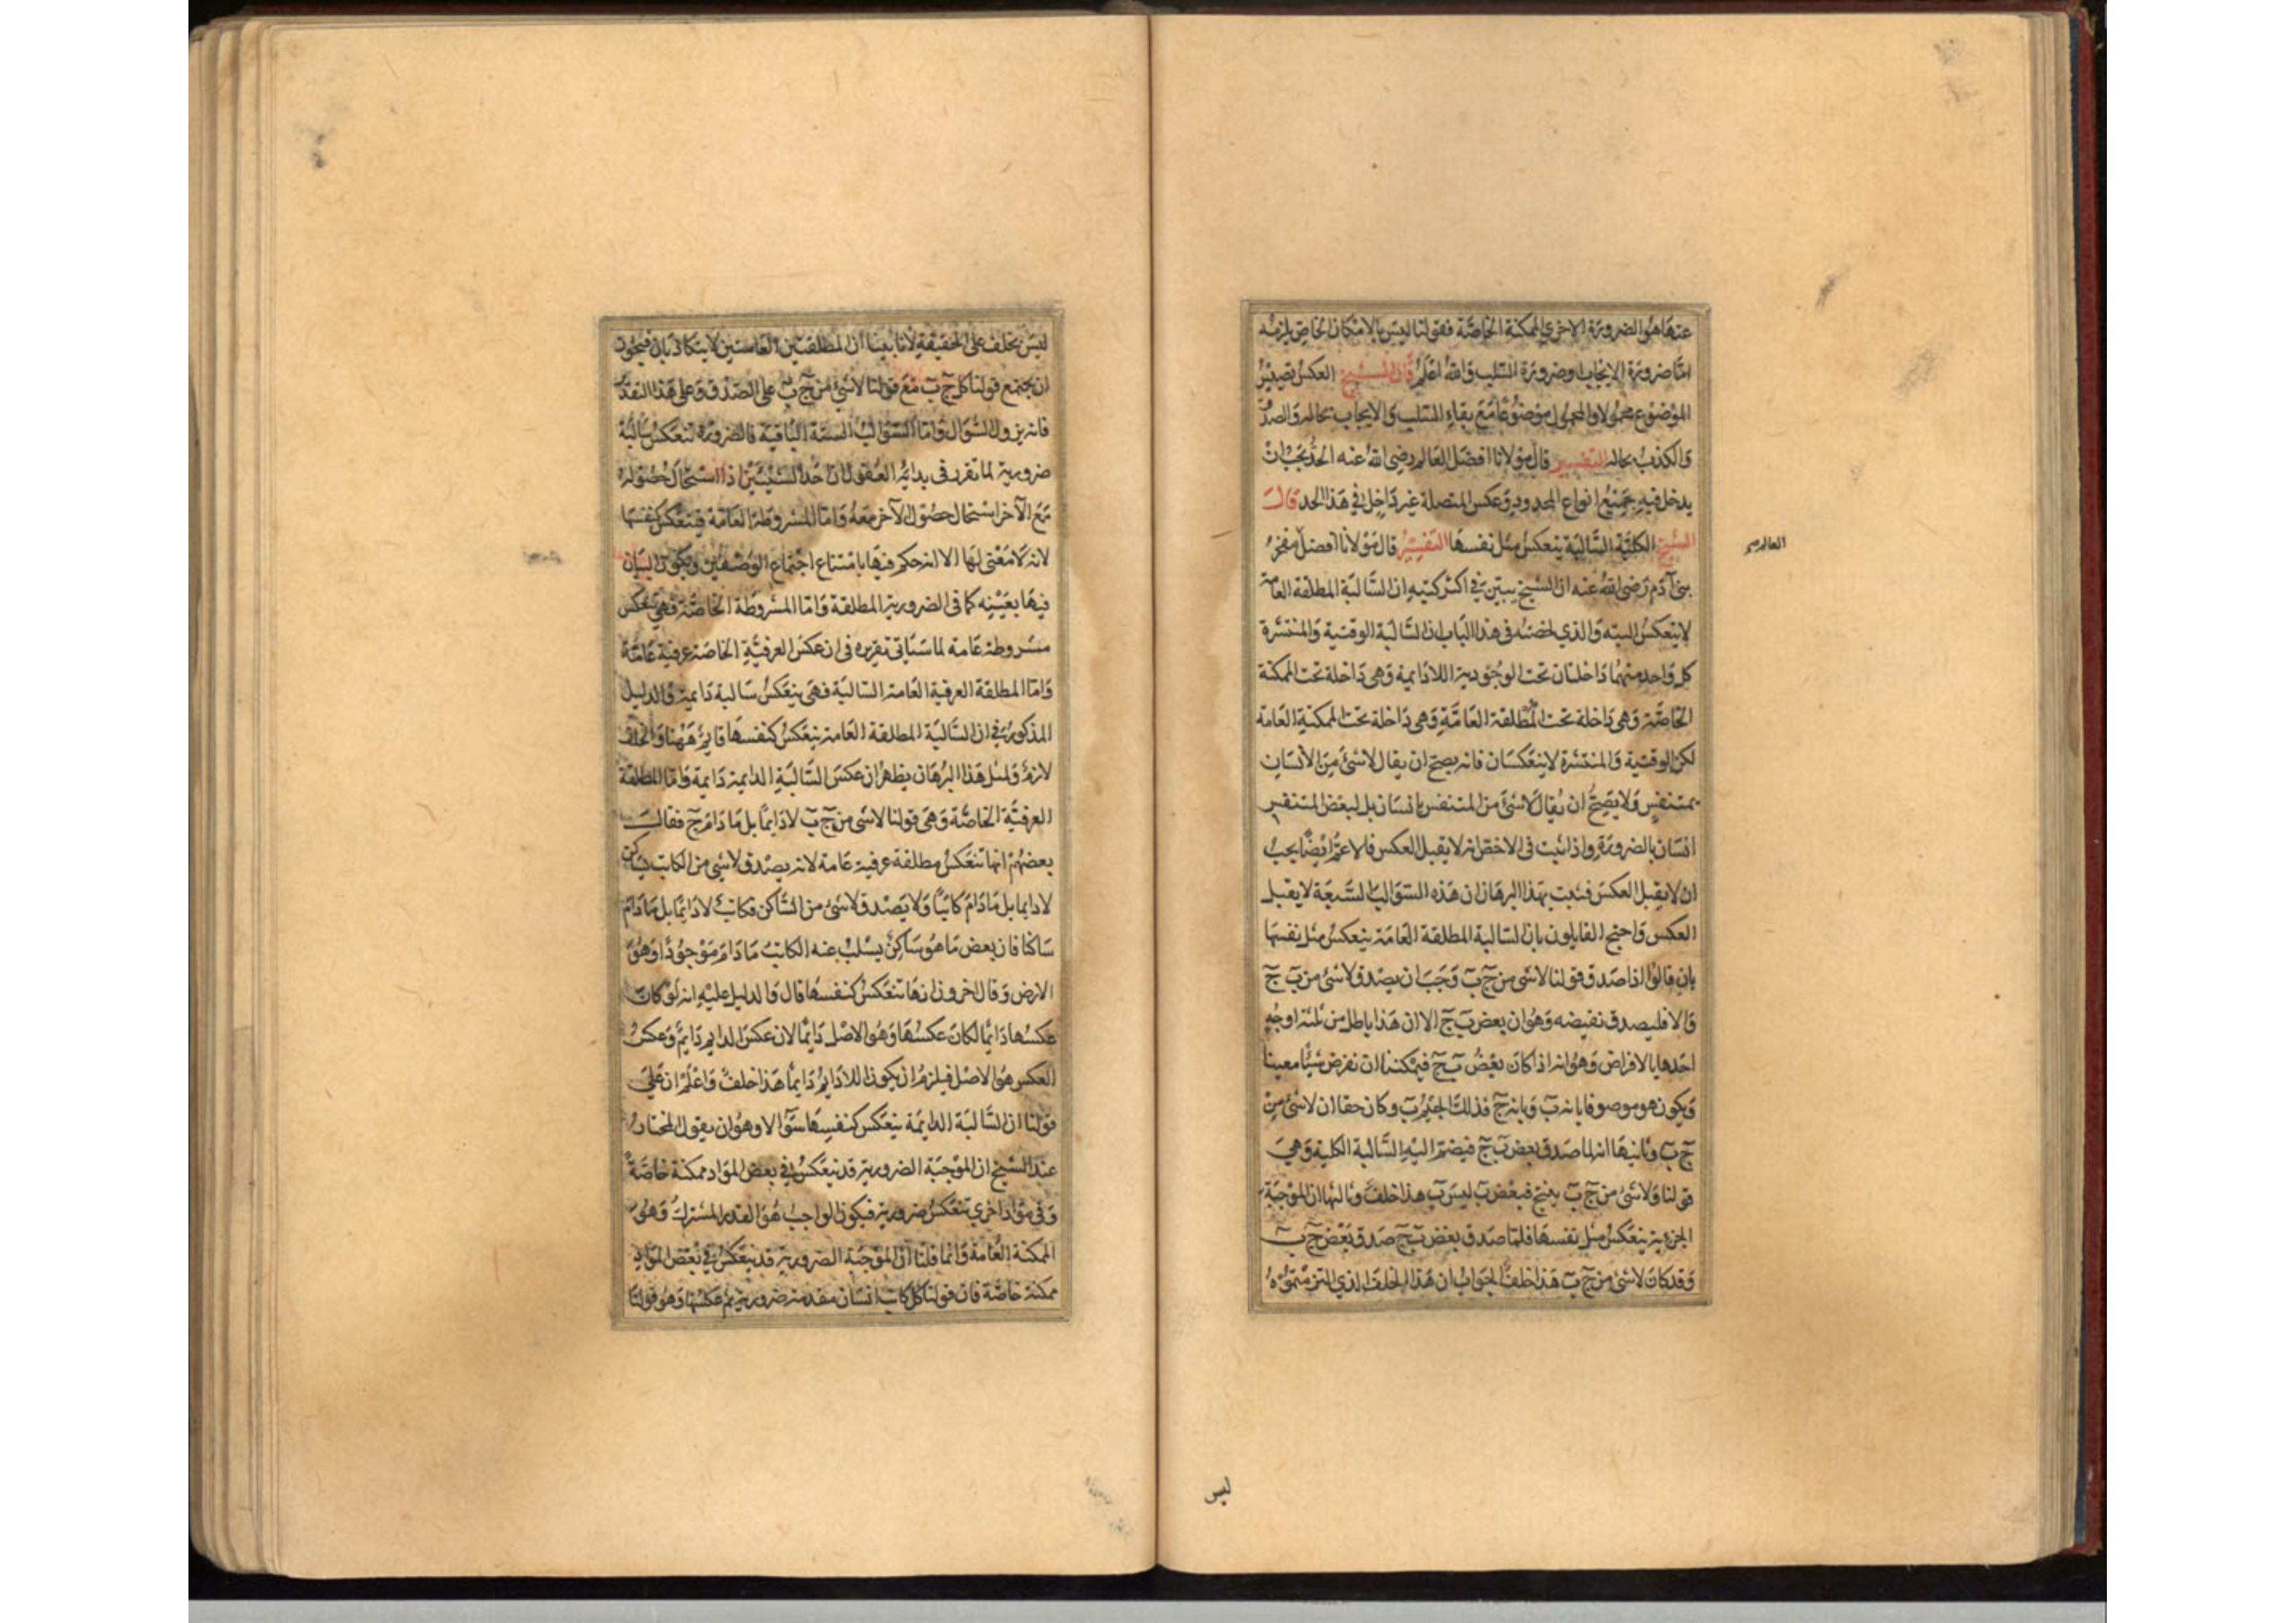 عنها هو الضرورة الاخرى الممكنة الخاصة فقولنا ليس بالامكان الخاص يلزمه
اما ضرورة الايجاب او ضرورة السلب والله اعلم قال الشيخ العكس تصيير
الموضوع محمولا والمحمول موضوعا مع بقاء السلب والايجاب بحاله والصدق
والكذب بحاله التفسير قال مولانا افضل العالم رضى الله عنه الحد يجب ان
يدخل فيه جميع انواع المحدود وعكس المتصلة غير داخل في هذا الحد قال
الشيخ الكلية السالبة ينعكس مثل نفسها التفسير قال مولانا افضل مفخر
العالم
بنى آدم رضى الله عنه ان الشيخ يبين في اكثر كتبه ان السالبة المطلقة العامة
لا ينعكس البته والذي لخصته فى هذا الباب ان السالبة الوقتية والمنتشرة
كل واحد منهما داخلتان تحت الوجودية اللادايمة وهى داخلة تحت الممكنة
الخاصة وهى داخلة تحت المطلقة العامة وهى داخلة تحت الممكنة العامة
لكن الوقتية والمنتشرة لا ينعكسان فانه يصح ان يقال لا شئ من الانسان
بمتنفس ولا يصح ان يقال لا شئ من المتنفس بانسان بل لبعض المتنفس
انسان بالضرورة واذا ثبت فى الاخص انه لا يقبل العكس فالاعم ايضا يجب
ان لا يقبل العكس فثبت بهذا البرهان ان هذه السوالب السبعة لا يقبل
العكس واحتج القايلون بان السالبة المطلقة العامة ينعكس مثل نفسها
بان قالوا اذا صدق قولنا لا شى من ج ب وجب ان يصدق لا شئ من ب ج
والا فليصدق نقيضه وهو ان بعض ب ج الا ان هذا باطل من ثلثة اوجه
احدها بالافراض وهو انه اذا كان بعض ب ج فيمكننا ان نفرض شيئا معينا
ويكون هو موصوفا بانه ب وبانه ج فذلك الجيم ب وكان حقا ان لا شئ من
ج ب وثانيها انه لما صدق بعض ب ج فيضم اليه السالبة الكلية وهي
قولنا ولا شئ من ج ب ينتج فبعض ب ليس ب هذا خلف وثالثها ان الموجبة
الجزءية ينعكس مثل نفسها فلما صدق بعض ب ج صدق بعض ج ب
وقد كان لا شئ من ج ب هذا خلف الجواب ان هذا الخلف الذي التزمتموه
ليس
ليس بخلف على الحقيقة لانا بينا ان المطلقتين العامتين لا يتكاذبان فيجوز
ان يجتمع قولنا كل ج ب مع قولنا لا شئ من ج ب على الصدق وعلى هذا التقدير
فانه يزول السوال واما السوالب الستة الباقية فالضرورة تنعكس سالبة
ضرورية لما تقرر في بداية العقول ان احد الشيئين اذا استحال حصوله
مع الآخر استحال حصول الآخر معه واما المشروطة العامة فينعكس كنفسها
لانه لا معنى لها الا انه حكم فيها بامتناع اجتماع الوصفين ويكون البيان
فيها بعينه كما فى الضرورية المطلقة واما المشروطة الخاصة فهى تنعكس
مشروطة عامة لما سياتى تقريره فى ان عكس العرفية الخاصة عرفية عامة
واما المطلقة العرفية العامة السالبة فهى ينعكس سالبة دايمة والدليل
المذكور في ان السالبة المطلقة العامة ينعكس كنفسها قايم ههنا والخلف
لازم ولمثل هذا البرهان يظهر ان عكس السالبة الدايمة دايمة واما المطلقة
العرفية الخاصة وهى قولنا لا شى من ج ب لا دايما بل ما دام ج فقال
بعضهم انها تنعكس مطلقة عرفية عامة لانه يصدق لا شى من الكاتب بساكن
لا دايما بل ما دام كاتبا ولا يصدق لا شئ من الساكن فكاتب لا دايما بل ما دام
ساكنا فان بعض ما هو ساكن يسلب عنه الكاتب ما دام موجودا وهو
الارض وقال اخرون انها تنعكس كنفسها قال والدليل عليه انه لو كان
عكسها دايما لكان عكسها وهو الاصل دايما لان عكس الدايم دايم وعكس
العكس هو الاصل فيلزم ان يكون اللادايم دايما هذا خلف واعلم ان على
قولنا ان السالبة الدايمة ينعكس كنفسها سوالا وهو ان يقول المختار
عند الشيخ ان الموجبة الضرورية قد ينعكس في بعض المواد ممكنة خاصة
وفى مواد اخرى تنعكس ضرورية فيكون الواجب هو القدر المشترك وهو
الممكنة العامة وانما قلنا ان الموجبة الضرورية قد ينعكس في بعض المواد
ممكنة خاصة فان قولنا كل كاتب انسان مقدمة ضرورية ثم عكسها وهو قولنا